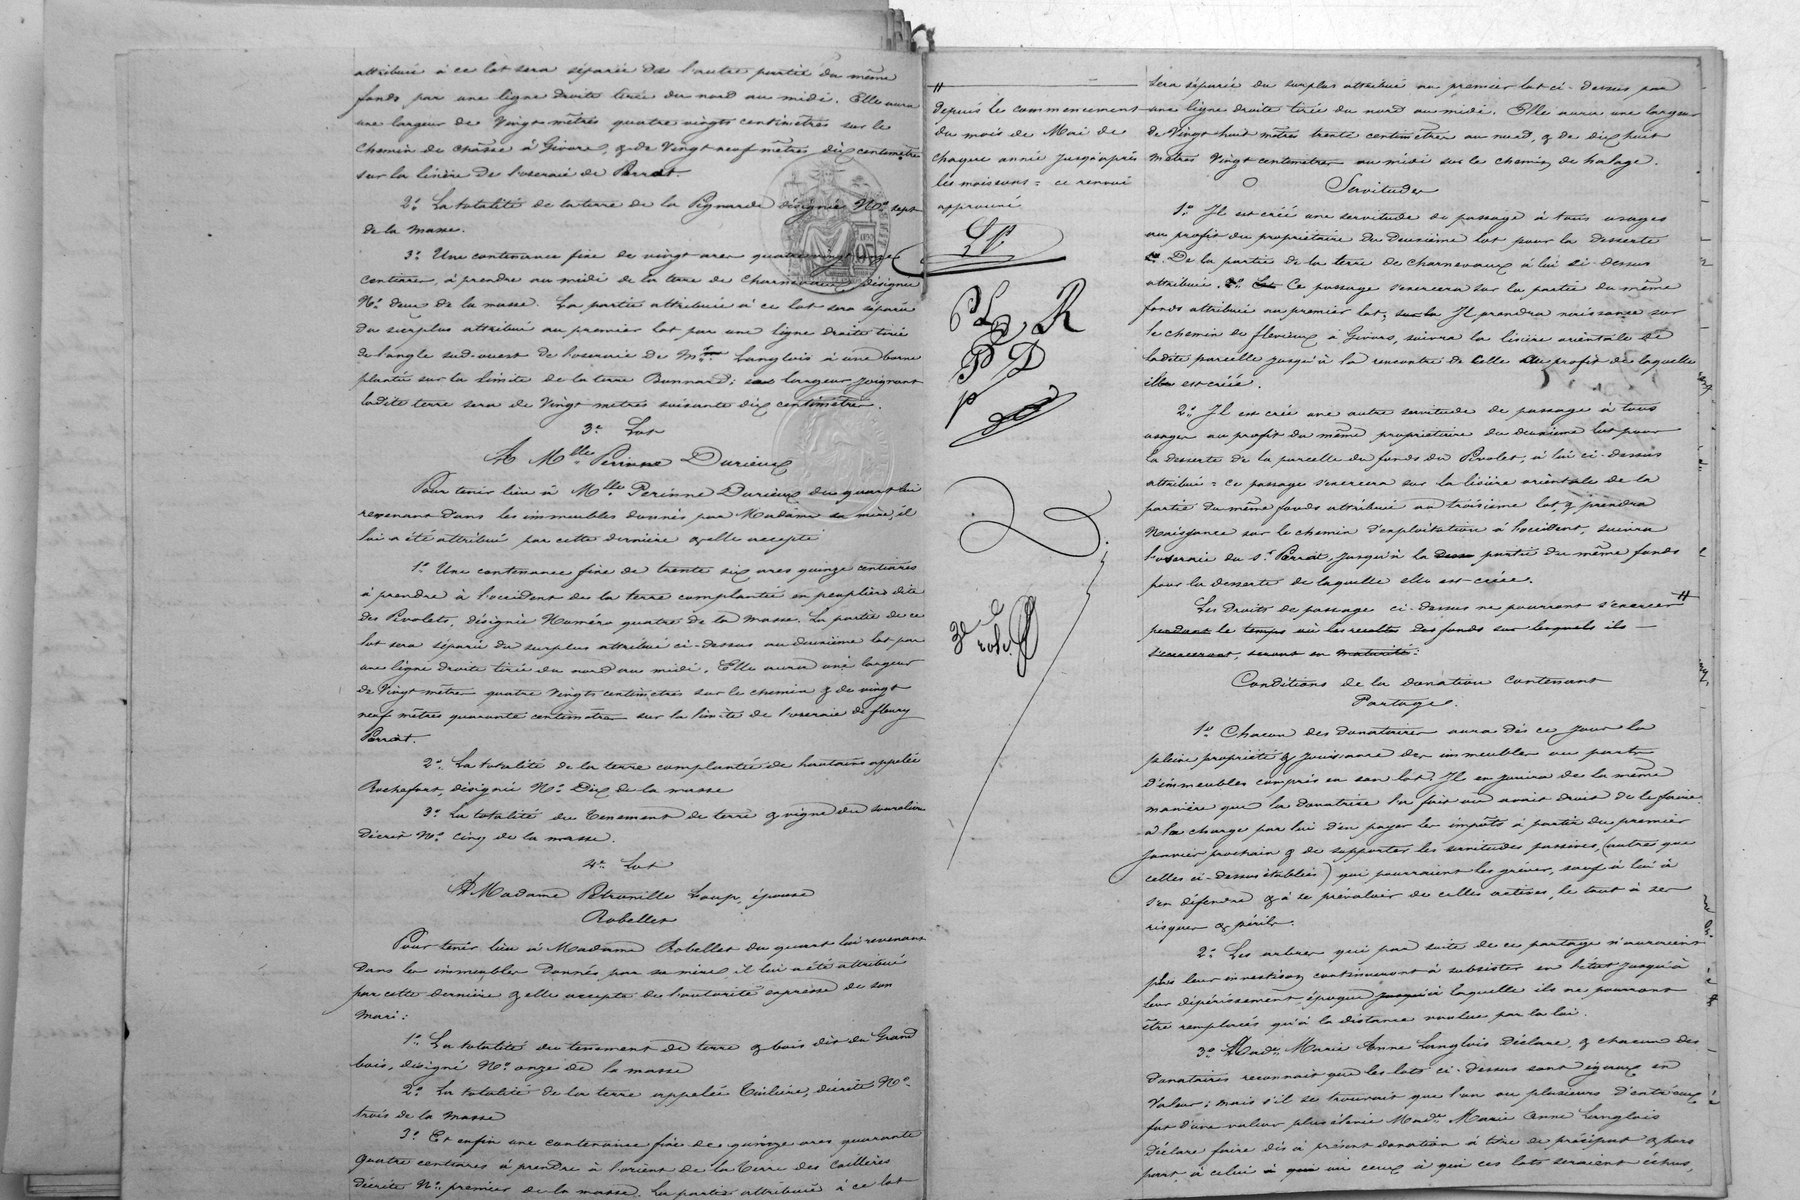 attribuée à ce lot sera séparée de l'autre partie du même
fonds, par une ligne droite tirée du nord au midi. Elle aura
une largeur de Vingt mètres quatre vingts centimètres sur le
chemin de chasse à Givors, & de Vingt neuf mètres dix centimètres
sur la lisière de l'oseraie de Perrot.
2.° La totalité de la terre de la Pignarde désignée N.° sept
de la masse.
3.° Une contenance fixe de vingt ares quatre vingt onze
centiares, à prendre au midi de la terre de Charnevaux désignée
N.° deux de la masse. La partie attribuée à ce lot sera séparée
du surplus attribué au premier lot par une ligne droite tirée
de l'angle sud-ouest de l'oseraie de M.r Langlois à une borne
plantée sur la limite de la terre Bonnard; sa largeur joignant
ladite terre sera de Vingt mètres soixante dix centimètres.
3.e Lot
A M.lle Perinne Durieux
Pour tenir lieu à M.lle Perinne Durieux du quart lui
revenant dans les immeubles donnés par Madame sa mère, il
lui a été attribué par cette dernière & elle accepte
1.° Une contenance fixe de trente six ares quinze centiares
à prendre à l'occident de la terre complantée en peupliers dite
des Pivolets, désignée Numéro quatre de la masse. La partie de ce
lot sera séparée du surplus attribué ci-dessus au deuxième lot par
une ligne droite tirée du nord au midi. Elle aura une largeur
de Vingt mètres quatre vingts centimètres sur le chemin & de vingt
neuf mètres quarante centimètres sur la limite de l'oseraie de fleury
Perrot.
2.° La totalité de la terre complantée de hautains appelée
Rochefort, désignée N.° Dix de la masse
3.° La totalité du tenement de terre & vigne du
décrit N.° cinq de la masse.
4.e Lot
A Madame Pétronille Loup, épouse
Robellet
Pour tenir lieu à Madame Robellet du quart lui revenant
dans les immeubles donnés par sa mère il lui a été attribué
par cette dernière & elle accepte de l'autorité expresse de son
mari:
1.° La totalité du tenement de terre & bois dit du Grand
bois, désigné N.° onze de la masse
2.° La totalité de la terre appelée Tuilière, décrite N.°
trois de la masse
3.° Et enfin une contenance fixe de quinze ares quarante
quatre centiares à prendre à l'orient de la Terre des Caillères
décrite N.° premier de la masse. La partie attribuée à ce lot
depuis le commencement
du mois de Mai de
chaque année jusqu'après
les moissons = ce renvoi
approuvé
LP
PL D R
PD D
P
3e role
sera séparée du surplus attribué au premier lot ci-dessus par
une ligne droite tirée du nord au midi. Elle aura une largeur
de Vingt huit mètres trente centimètres au nord, & de dix huit
mètres Vingt centimètres au midi sur le chemin de halage.
Servitudes
1.° Il est créé une servitude de passage à tous usages
au profit du propriétaire du deuxième lot pour la desserte
De la partie de la terre de Charnevaux à lui ci-dessus
attribuée. Ce passage s'exercera sur la partie du même
fonds attribuée au premier lot; Il prendra naissance sur
le chemin de flevieux à Givors, suivra la lisière orientale de
ladite parcelle jusqu'à la rencontre de celle au profit de laquelle
il est créé.
2.° Il est créé une autre servitude de passage à tous
usages au profit du même propriétaire du deuxième lot pour
la desserte de la parcelle du fonds du Pivolet, à lui ci-dessus
attribué = ce passage s'exercera sur la lisière orientale de la
partie du même fonds attribuée au troisième lot, & prendra
Naissance sur le chemin d'exploitation à l'occident, suivra
l'oseraie du S.r Perrot, jusqu'à la partie du même fonds
pour la desserte de laquelle elle est créée.
Les droits de passage ci-dessus ne pourront s'exercer
pendant le temps où les récoltes des fonds sur lesquels ils
s'exerceront, seront en maturité.
Conditions de la donation contenant
Partage.
1.° Chacun des donataires aura dès ce jour la
pleine propriété & jouissance des immeubles ou parts
d'immeubles compris en son lot. Il en jouira de la même
manière que la donatrice l'a fait ou avait droit de le faire.
à la charge par lui d'en payer les impôts à partir du premier
janvier prochain & de supporter les servitudes passives, (autres que
celles ci-dessus établies) qui pourraient les gréver, sauf à lui à
s'en défendre & à se prévaloir de celles actives, le tout à ses
risques & périls.
2.° Les arbres qui par suite de ce partage n'auraient
plus leur investison, continueront à subsister en l'état jusqu'à
leur dépérissement, époque à laquelle ils ne pourront
être remplacés qu'à la distance voulue par la loi.
3.° Made. Marie Anne Langlois déclare, & chacun des
donataires reconnait que les lots ci-dessus sont égaux en
valeur; mais s'il se trouvait que l'un ou plusieurs d'entr'eux
fut d'une valeur plus élevée Made. Marie Anne Langlois
déclare faire dès à présent donation à titre de préciput & hors
part, à celui ou ceux à qui ces lots seraient échus,